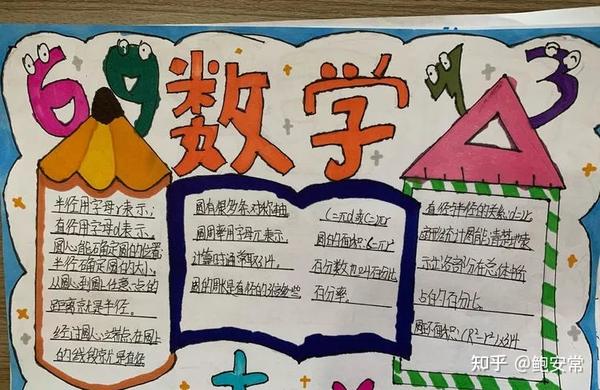 69 数学 7 3
半径用字母r表示,
直径用字母d表示,
圆心能确定圆的位置
半径确定圆的大小,
从圆心到圆任意一点的
距离就是半径。
经过圆心两端点在圆上
的线段就是直径
圆有很多条对称轴
圆周率用字母π表示,
计算时通常取3.14。
圆的周长是直径的3倍多一些
C=πd或C=2πr
圆的面积:S=πr²
百分数也叫百分比
百分率。
直径半径的关系:d=2r,
扇形统计图能清楚地表
示出各部分在总体中所
占的百分比。
圆环面积:(R²-r²)×3.14
知乎 @鲍安常